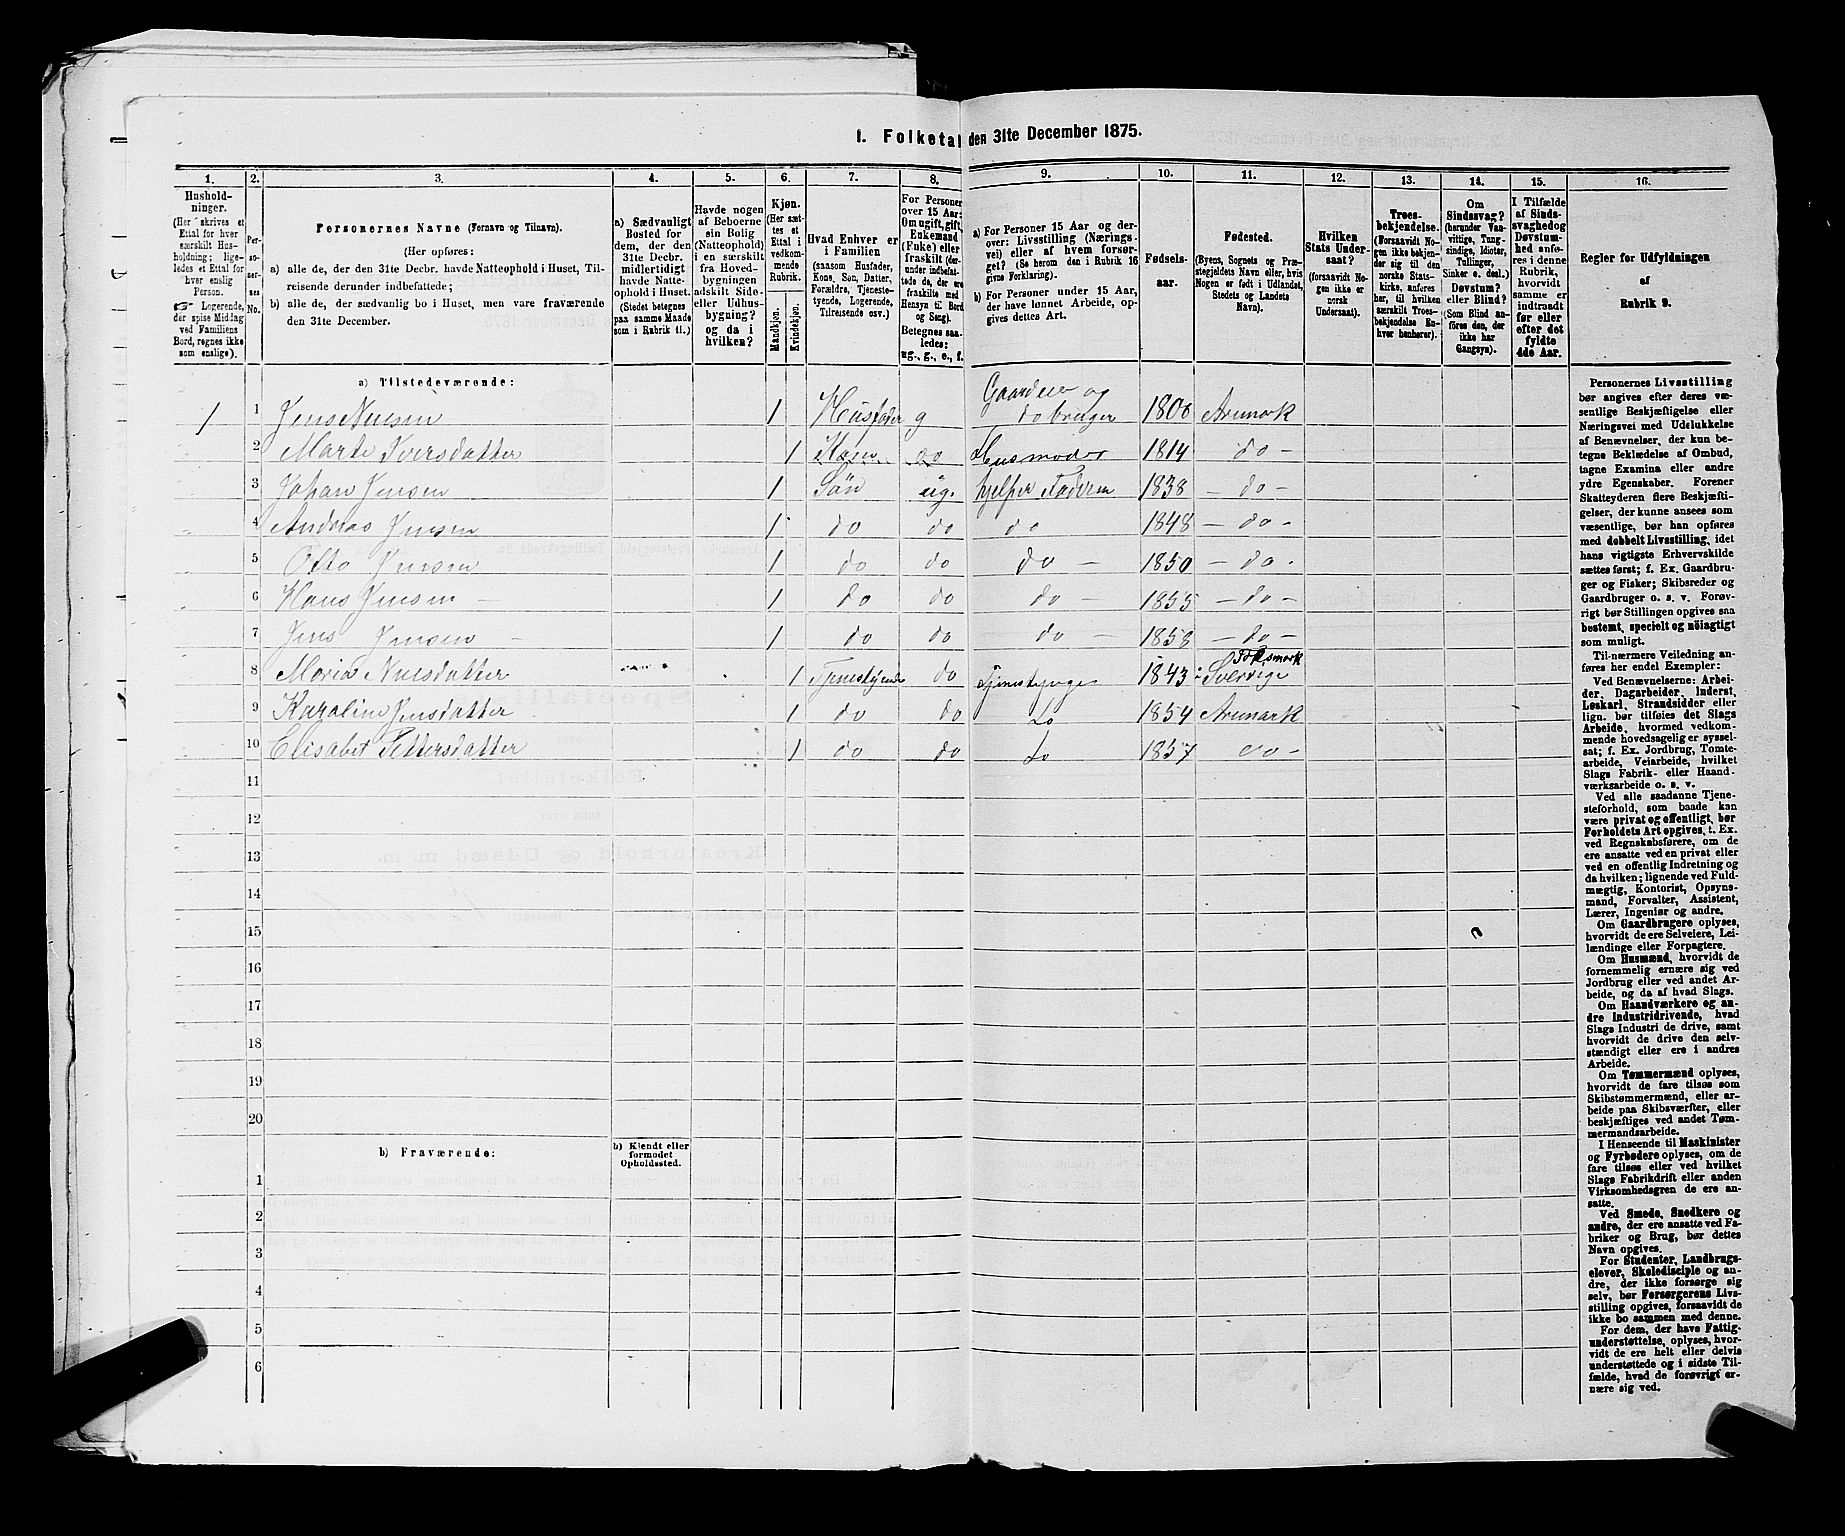 1. Folketal den 31te December 1875.
1.
Hushold-
ninger.
(Her skrives et
Ettal for hver
særskilt Hus-
holdning; lige-
ledes et Ettal for
hver enslig
Person.
☞ Logerende,
der spise Middag
ved Familiens
Bord, regnes ikke
som enslige).
2.
Per-
soner-
nes
No.
3.
Personernes Navne (Fornavn og Tilnavn).
(Her opføres:
a) alle de, der den 31te Decbr. havde Natteophold i Huset, Til-
reisende derunder indbefattede;
b) alle de, der sædvanlig bo i Huset, men vare fraværende
den 31te December.
4.
a) Sædvanligt
Bosted for
dem, der den
31te Decbr.
midlertidigt
havde Natte-
ophold i Huset.
(Stedet betegnes
paa samme Maade
som i Rubrik 11.)
5.
Havde nogen
af Beboerne
sin Bolig
(Natteophold)
i en særskilt
fra Hoved-
bygningen
adskilt Side-
eller Udhus-
bygning?
og da i
hvilken?
6.
Kjøn.
(Her sæt-
tes et
Ettal i
vedkom-
mende
Rubrik.
Mandkjøn.
Kvindekjøn.
7.
Hvad Enhver er
i Familien
(saasom Husfader,
Kone, Søn, Datter,
Forældre, Tjeneste-
tyende, Logerende,
Tilreisende osv.)
8.
For Personer
over 15 Aar:
Om ugift, gift,
Enkemand
(Enke) eller
fraskilt (der-
under indbefat-
tede de, der ere
fraskilte med
Hensyn til Bord
og Seng).
Betegnes saa-
ledes:
ug., g., e., f.
9.
a) For Personer 15 Aar og der-
over: Livsstilling (Nærings-
vei) eller af hvem forsør-
get? (Se herom den i Rubrik 16
givne Forklaring).
b) For Personer under 15 Aar,
der have lønnet Arbeide, op-
gives dettes Art.
10.
Fødsels-
aar.
11.
Fødested.
(Byens, Sognets og Præ-
stegjeldets Navn eller, hvis
Nogen er født i Udlandet,
Stedets og Landets
Navn).
12.
Hvilken
Stats Under-
saat?
(forsaavidt No-
gen ikke er
norsk
Undersaat).
13.
Troes-
bekjendelse.
(Forsaavidt No-
gen ikke bekjen-
der sig til den
norske Stats-
kirke, anføres
her, til hvilken
særskilt Troes-
bekjendelse En-
hver henhører).
14.
Om
Sindssvag?
(herunder Vaa-
vittige, Tung-
sindige, Idioter,
Tullinger,
Sinker o. desl.)
Døvstum?
eller Blind?
(Som Blind an-
føres den, der
ikke har
Gangsyn).
15.
I Tilfælde
af Sinds-
svaghed og
Døvstum-
hed anfø-
res i denne
Rubrik,
hvorvidt
samme er
indtraadt
før eller
efter det
fyldte
4de Aar.
16.
Regler for Udfyldningen
af
Rubrik 9.
a) Tilstedeværende:
1 1 Jens Nilsen 1 Husfader g Gaardeier og do bruger 1806 Aremark
2 Marte Iversdatter 1 Kone do Husmoder 1814 do
3 Johan Jensen 1 Søn ug. hjelper Faderen 1838 do
4 Andreas Jensen 1 do do do 1848 do
5 Otto Jensen 1 do do do 1850 do
6 Hans Jensen 1 do do do 1855 do
7 Jens Jensen 1 do do do 1858 do
8 Maria Nilsdatter 1 Tjenesttyende do Tjenestepige 1843 Sverrige
9 Karoline Jensdatter 1 do do do 1854 Aremark
10 Elisabet Pettersdatter 1 do do do 1857 do
11
12
13
14
15
16
17
18
19
20
b) Fraværende:
b) Kjendt eller
formodet
Opholdssted.
1
2
3
4
5
6
Personernes Livsstilling
bør angives efter deres væ-
sentlige Beskjæftigelse eller
Næringsvei med Udelukkelse
af Benævnelser, der kun be-
tegne Beklædelse af Ombud,
tagne Examina eller andre
ydre Egenskaber. Forener
Skatteyderen flere Beskjæfti-
gelser, der kunne ansees som
væsentlige, bør han opføres
med dobbelt Livsstilling, idet
hans vigtigste Erhvervskilde
sættes først; f. Ex. Gaardbru-
ger og Fisker; Skibsreder og
Gaardbruger o. s. v. Forøv-
rigt bør Stillingen opgives saa
bestemt, specielt og nøiagtigt
som muligt.
Til nærmere Veiledning an-
føres her endel Exempler:
Ved Benævnelserne: Arbei-
der, Dagarbeider, Inderst,
Løskarl, Strandsidder eller
lign. bør tilføies det Slags
Arbeide, hvormed vedkom-
mende hovedsagelig er syssel-
sat; f. Ex. Jordbrug, Tomte-
arbeide, Veiarbeide, hvilket
Slags Fabrik- eller Haand-
værksarbeide o. s. v.
Ved alle saadanne Tjene-
steforhold, som baade kan
være privat og offentligt, bør
Forholdets Art opgives, t. Ex.
ved Regnskabsførere, om de
ere ansatte ved en privat eller
ved en offentlig Indretning og
da hvilken; lignende ved Fuld-
mægtig, Kontorist, Opsyns-
mand, Forvalter, Assistent,
Lærer, Ingeniør og andre.
Om Gaardbrugere oplyses,
hvorvidt de ere Selveiere, Lei-
lændinge eller Forpagtere.
Om Husmænd, hvorvidt de
fornemmelig ernære sig ved
Jordbrug eller ved andet Ar-
beide, og da af hvad Slags.
Om Haandværkere og an-
dre Industridrivende, hvad
Slags Industri de drive, samt
hvorvidt de drive den selv-
stændigt eller ere i andres
Arbeide.
Om Tømmermænd oplyses,
hvorvidt de fare tilsøs som
Skibstømmermænd, eller ar-
beide paa Skibsværfter, eller
beskjæftiges ved andet Tøm-
mermandsarbeide.
I Henseende til Maskinister
og Fyrbødere oplyses, om de
fare tilsøs eller ved hvilket
Slags Fabrikdrift eller anden
Virksomhedsgren de ere an-
satte.
Ved Smede, Snedkere og
andre, der ere ansatte ved Fa-
briker og Brug, bør dettes
Navn opgives.
For Studenter, Landbrugs-
elever, Skoledisciple og an-
dre, der ikke forsørge sig
selv, bør Forsørgerens Livs-
stilling opgives, forsaavidt de
ikke bo sammen med denne.
For dem, der have Fattig-
understøttelse, oplyses, hvor-
vidt de ere helt eller delvis
understøttede og i sidste Til-
fælde, hvad de forøvrigt er-
nære sig ved.